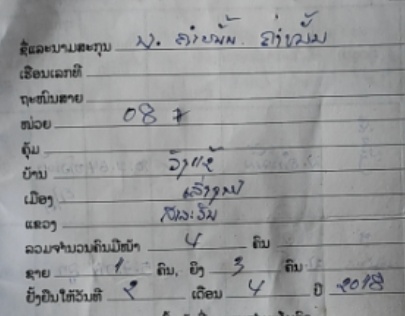 ຊື່ແລະນາມສະກຸນ ພ. ຄຳຫມັ້ນ ຄຳຫມັ້ນ
ເຮືອນເລກທີ
ຖະໜົນສາຍ
ໜ່ວຍ 08
ຄຸ້ມ
ບ້ານ ວັງແຄ້
ເມືອງ ເລົ່າງາມ
ແຂວງ ສາລະວັນ
ລວມຈຳນວນຄົນມີໜ້າ 4 ຄົນ
ຊາຍ 1 ຄົນ, ຍິງ 3 ຄົນ
ຢັ້ງຢືນໃຫ້ວັນທີ 2 ເດືອນ 4 ປີ 2018